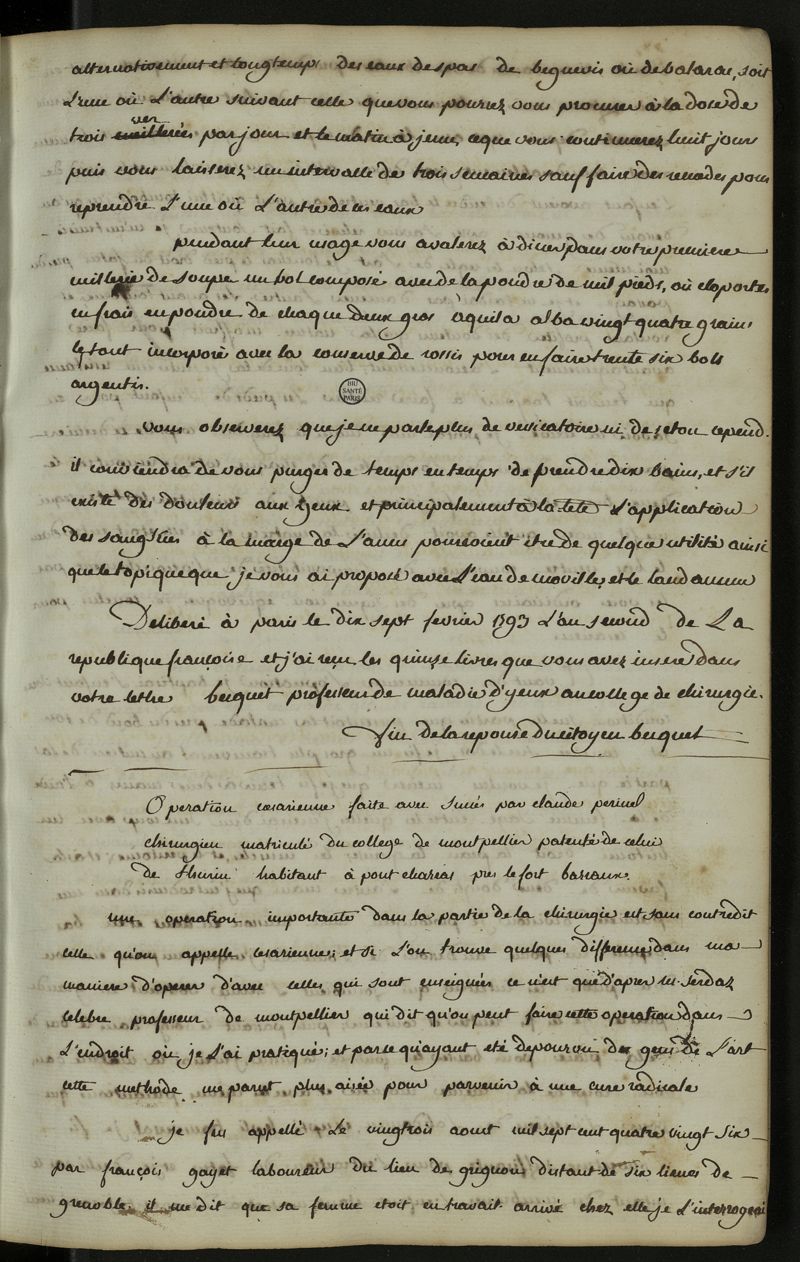 alternativement et longtemps des eaux de spas de bagneris où de balarae, soit
L'une où L'autre suivant celle que vous pourrez vous procurer à la dose de
ver
trois par jour et le matin à jeun, ce que vous continuerez huit jours
puis vous laisserez un intervalle de trois semaines sauf faire des remedes pour
reprendre L'une où L'autre de ces eaux
pendant leur usage vous avalerez à diner dans votre premiere
cuillerée de soupe un bol composé avec de la poudre de mil pieds, où cloportes
en frais en poudre de chaque deux gros aquila alba vingt quatre grains
le tout incorporé avec la conserve de rossis pour en faire trente six bols
argentis.
BIU SANTÉ PARIS
vous observerez que je ne parle plus de vesicatoire ni de seton cepend.
il conviendra de vous purger de temps en temps de prendre dix bains, et s'il
existe des douleurs aux yeux et principalement à la tete L'application
des sangsues à la marge de L'anus pourroient etre de quelque utilité ainsi
que le topique que je vous ai proposé avec L'eau de morilles et le laudanum
Deliberé à paris le dix sept fevrier 1793 L'an second de La
republique françoise et j'ai reçu les quinze livres que vous avez inseré dans
votre lettre becquet professeur de maladie d'yeux au college de chirurgie.
Fin de la reponse du citoyen becquet
Operation cesarienne faite avec succés par claude perinel
chirurgien matriculé du college de montpellier patenté de celui
de fleurin habitant à pont charras pres le fort baraux.
une operation importante dans la partie de la chirurgie est sans contredit
celle qu'on appelle cesarienne; et si L'on trouve quelques differences dans ma
maniere d'operer d'avec celles qui sont enseignées ce n'est que d'apres Mr Serdaz
celebre professeur de montpellier qui dit qu'on peut faire cette operation dans
L'endroit où je L'ai pratiqué; et parce qu'ayant eté depourvu des gens de L'art
cette methode me parut plus aisée pour parvenir à une cure radicale
je fus appellé Le vingtrois aout mil sept cent quatre vingt six
par françois gayet laboureur du lieu de grignon distant de six lieues de
grenoble, il me dit que sa femme etoit en travail arrivé chez elle je L'interrogeai